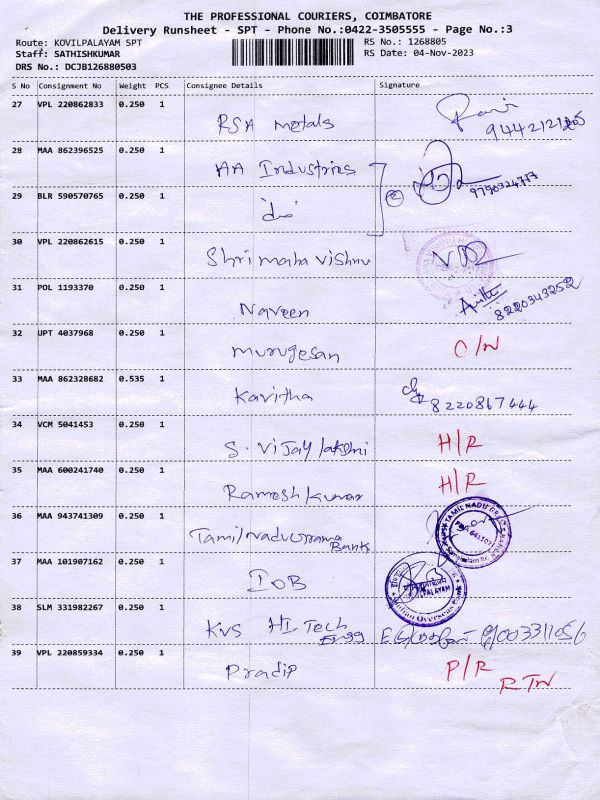 THE PROFESSIONAL COURIERS, COIMBATORE
Delivery Runsheet - SPT - Phone No.:0422-3505555 - Page No.:3
Route: KOVILPALAYAM SPT RS No.: 1268805
Staff: SATHISHKUMAR RS Date: 04-Nov-2023
DRS No.: DCJB126880503
S No Consignment No Weight PCS Consignee Details Signature
27 VPL 220862833 0.250 1 RSA Metals
28 MAA 862396525 0.250 1 AA Industries
29 BLR 590570765 0.250 1 do
30 VPL 220862615 0.250 1 Shri maha vishnu
31 POL 1193370 0.250 1 Naveen 8220343252
32 UPT 4037968 0.250 1 Murugesan O/N
33 MAA 862328682 0.535 1 Kavitha 8220867444
34 VCM 5041453 0.250 1 S. Vijay lakshmi H/R
35 MAA 600241740 0.250 1 Ramesh Kumar H/R
36 MAA 943741309 0.250 1 Tamil Nadu Grama Bank
37 MAA 101907162 0.250 1 IOB
Indian Overseas Bank
38 SLM 331982267 0.250 1 KVS HI Tech
39 VPL 220859334 0.250 1 Pradip P/R
RTN